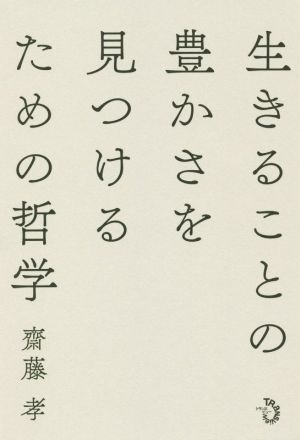 生きることの
豊かさを
見つける
ための哲学
齋藤 孝
TRANSVIEW